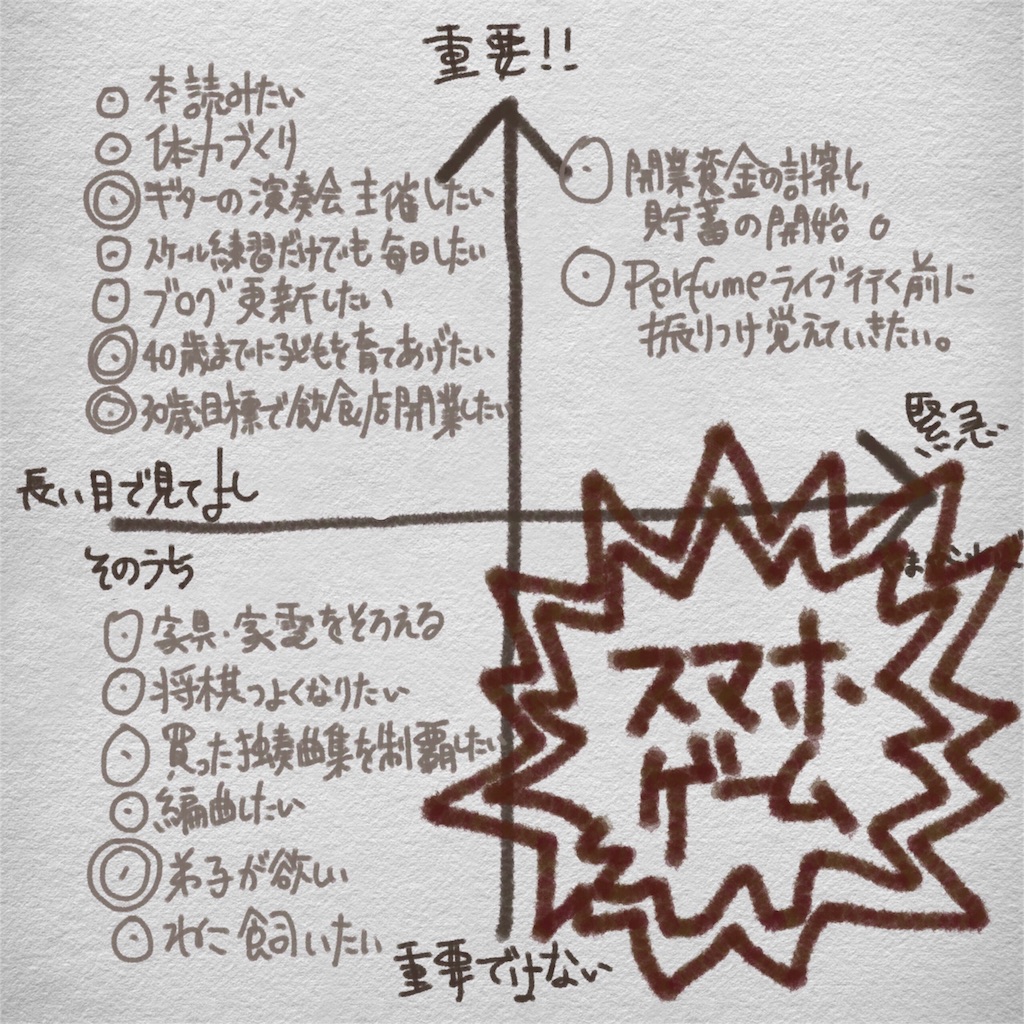 重要!!
本読みたい
体力づくり
ギターの演奏会主催したい
スケール練習だけでも毎日したい
ブログ更新したい
40歳までに子どもを育てあげたい
30歳目標で飲食店開業したい
開業資金の計算と、
貯蓄の開始。
Perfumeライブ行く前に
振りつけ覚えていきたい。
緊急
長い目で見てよし
そのうち
家具・家電をそろえる
将棋つよくなりたい
買った独奏曲集を制覇したい
編曲したい
弟子が欲しい
ねこ飼いたい
スマホ
ゲーム
重要ではない